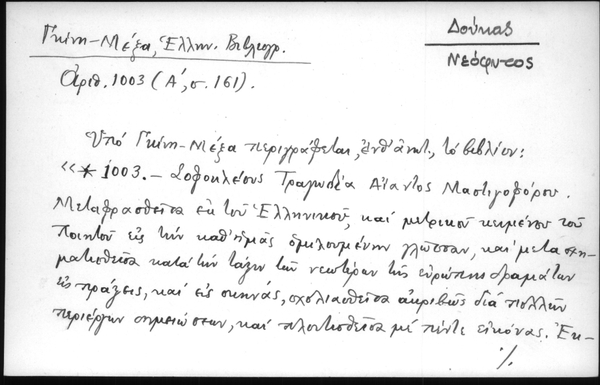 Γκίνη-Μέξα, Ἑλλην. Βιβλιογρ.
Δούκας
Νεόφυτος
Ἀριθ. 1003 (Α΄, σ. 161).
Ὑπό Γκίνη-Μέξα περιγράφεται, ἐνθ' ἀνωτ., τό βιβλίον:
«* 1003. – Σοφοκλέους Τραγωδία Αἴαντος Μαστιγοφόρου.
Μεταφρασθεῖσα ἐκ τοῦ Ἑλληνικοῦ, καί μετρικοῦ κειμένου τοῦ
Ποιητοῦ εἰς τήν καθ' ἡμᾶς ὁμιλουμένην γλῶσσαν, καί μετασχη-
ματισθεῖσα κατά τήν τάξιν τῶν νεωτέρων τῆς εὐρώπης δραμάτων
εἰς πράξεις, καί εἰς σκηνάς, σχολιασθεῖσα ἀκριβῶς διά πολλῶν
περιέργων σημειώσεων, καί πλουτισθεῖσα μέ πέντε εἰκόνας. Ἐκ-
./.